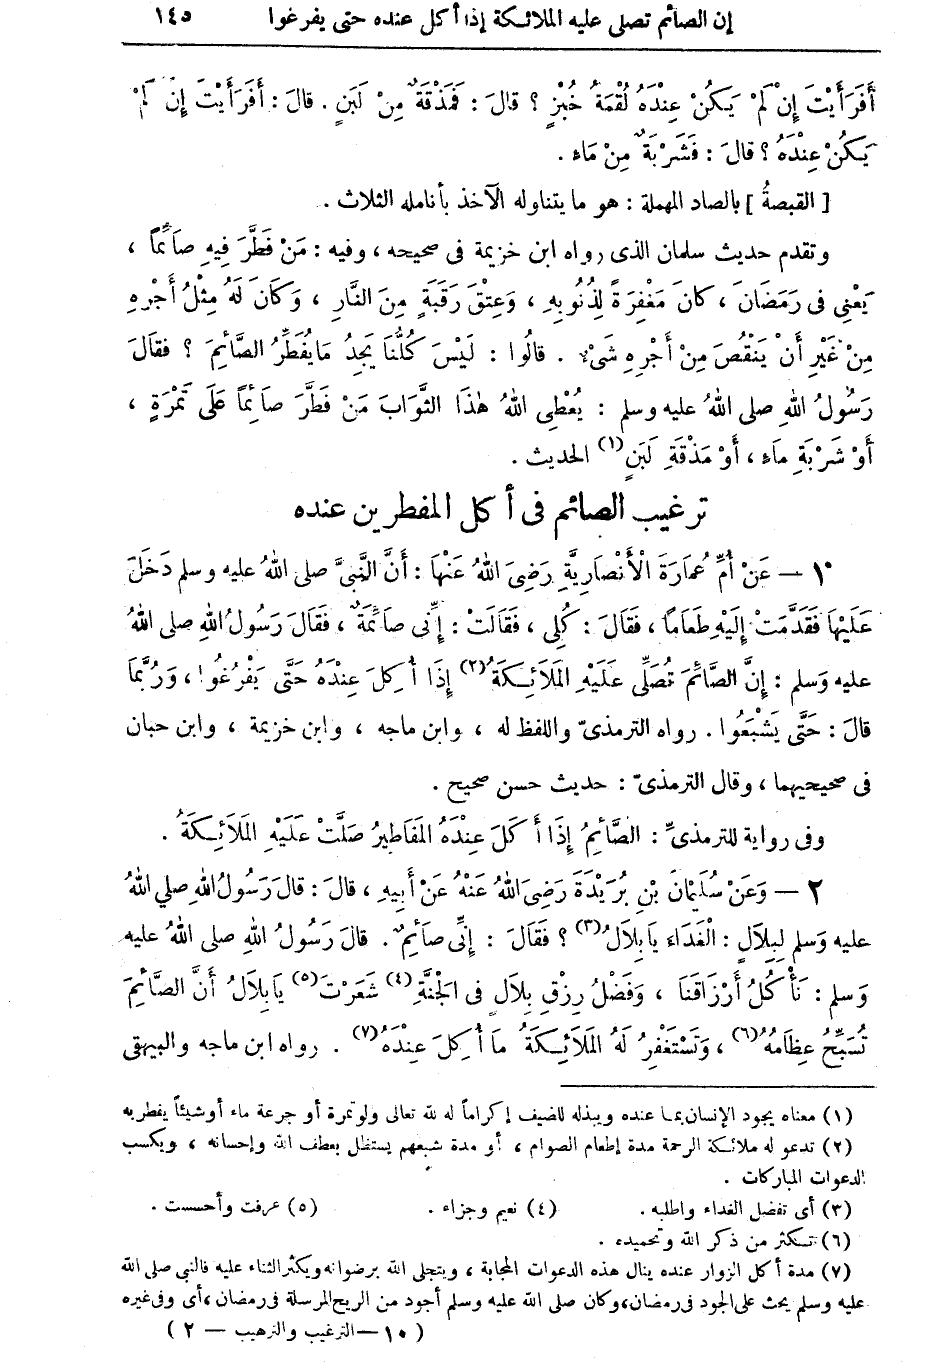 إن الصائم تصلى عليه الملائكة إذا أكل عنده حتى يفرغوا ١٤٥
أَفَرَأَيْتَ إِنْ لَمْ يَكُنْ عِنْدَهُ لُقْمَةُ خُبْزٍ ؟ قالَ : فَمَذْقَةٌ مِنْ لَبَنٍ . قالَ : أَفَرَأَيْتَ إِنْ لَمْ
يَكُنْ عِنْدَهُ ؟ قالَ : فَشَرْبَةٌ مِنْ مَاءٍ .
[ القبصةُ ] بالصاد المهملة : هو ما يتناوله الآخذ بأنامله الثلاث .
وتقدم حديث سلمان الذى رواه ابن خزيمة فى صحيحه ، وفيه : مَنْ فَطَّرَ فِيهِ صَائِمًا ،
يَعْنِى فى رَمَضَانَ ، كانَ مَغْفِرَةً لِذُنُوبِهِ ، وَعِتْقَ رَقَبَةٍ مِنَ النَّارِ ، وَكَانَ لَهُ مِثْلُ أَجْرِهِ
مِنْ غَيْرِ أَنْ يَنْقُصَ مِنْ أَجْرِهِ شَىْءٌ . قالُوا : لَيْسَ كُلُّنَا يَجِدُ مَا يُفَطِّرُ الصَّائِمَ ؟ فَقالَ
رَسُولُ اللهِ صلى اللهُ عليه وسلم : يُعْطِى اللهُ هٰذَا الثَّوَابَ مَنْ فَطَّرَ صَائِمًا عَلَى تَمْرَةٍ ،
أَوْ شَرْبَةِ مَاءٍ ، أَوْ مَذْقَةِ لَبَنٍ (١) الحديث .
ترغيب الصائم فى أكل المفطرين عنده
١ — عَنْ أُمِّ عُمَارَةَ الْأَنْصَارِيَّةِ رَضِىَ اللهُ عَنْهَا : أَنَّ النَّبِىَّ صلى اللهُ عليه وسلم دَخَلَ
عَلَيْهَا فَقَدَّمَتْ إِلَيْهِ طَعَامًا ، فَقَالَ : كُلِى ، فَقَالَتْ : إِنِّى صَائِمَةٌ ، فَقَالَ رَسُولُ اللهِ صلى اللهُ
عليه وَسلم : إِنَّ الصَّائِمَ تُصَلِّى عَلَيْهِ المَلَائِكَةُ (٢) إِذَا أُكِلَ عِنْدَهُ حَتَّى يَفْرُغُوا ، وَرُبَّمَا
قالَ : حَتَّى يَشْبَعُوا . رواه الترمذىّ واللفظ له ، وابن ماجه ، وابن خزيمة ، وابن حبان
فى صحيحيهما ، وقال الترمذىّ : حديث حسن صحيح .
وفى رواية للترمذىِّ : الصَّائِمُ إِذَا أَكَلَ عِنْدَهُ المَفَاطِيرُ صَلَّتْ عَلَيْهِ المَلَائِكَةُ .
٢ — وَعَنْ سُلَيْمَانَ بْنِ بُرَيْدَةَ رَضِىَ اللهُ عَنْهُ عَنْ أَبِيهِ ، قالَ : قالَ رَسُولُ اللهِ صلى اللهُ
عليه وَسلم لِبِلَالٍ : الْغَدَاءَ يَا بِلَالُ (٣) ؟ فَقَالَ : إِنِّى صَائِمٌ . قالَ رَسُولُ اللهِ صلى اللهُ عليه
وَسلم : نَأْكُلُ أَرْزَاقَنَا ، وَفَضْلُ رِزْقِ بِلَالٍ فى الجَنَّةِ (٤) شَعَرْتَ (٥) يَا بِلَالُ أَنَّ الصَّائِمَ
تُسَبِّحُ عِظَامُهُ (٦) ، وَتَسْتَغْفِرُ لَهُ المَلَائِكَةُ مَا أُكِلَ عِنْدَهُ (٧) . رواه ابن ماجه والبيهقى
(١) معناه يجود الإنسان بما عنده ويبذله للضيف إكراماً له لله تعالى ولو تمرة أو جرعة ماء أو شيئاً يفطر به
(٢) تدعو له ملائكة الرحمة مدة إطعام الصوام ، أو مدة شبعهم يستظل بعطف الله وإحسانه ، ويكسب
الدعوات المباركات .
(٣) أى تفضل الغداء واطلبه . (٤) نعيم وجزاء . (٥) عرفت وأحسست .
(٦) تكثر من ذكر الله وتحميده .
(٧) مدة أكل الزوار عنده ينال هذه الدعوات المجابة ، ويتجلى الله برضوانه ويكثر الثناء عليه فالنبى صلى الله
عليه وسلم يحث على الجود فى رمضان ، وكان صلى الله عليه وسلم أجود من الريح المرسلة فى رمضان ، أى وفى غيره
( ١٠ — الترغيب والترهيب — ٢ )